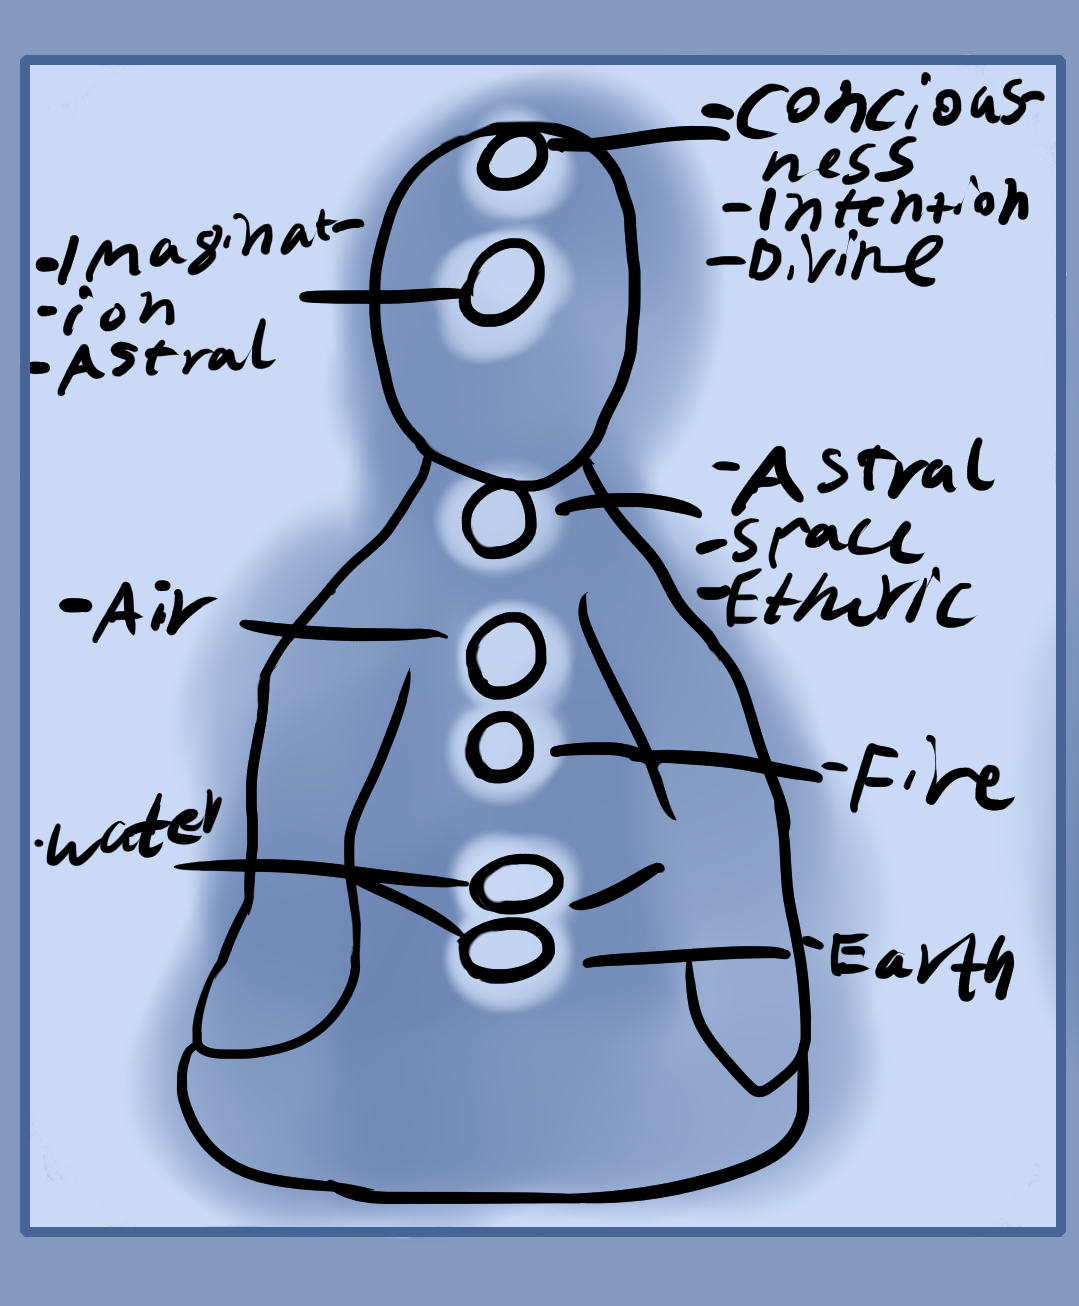 -Concious
ness
-Intention
-Divine
-Imaginat-
-ion
-Astral
-Astral
-space
-Etheric
-Air
-Fire
·water
-Earth